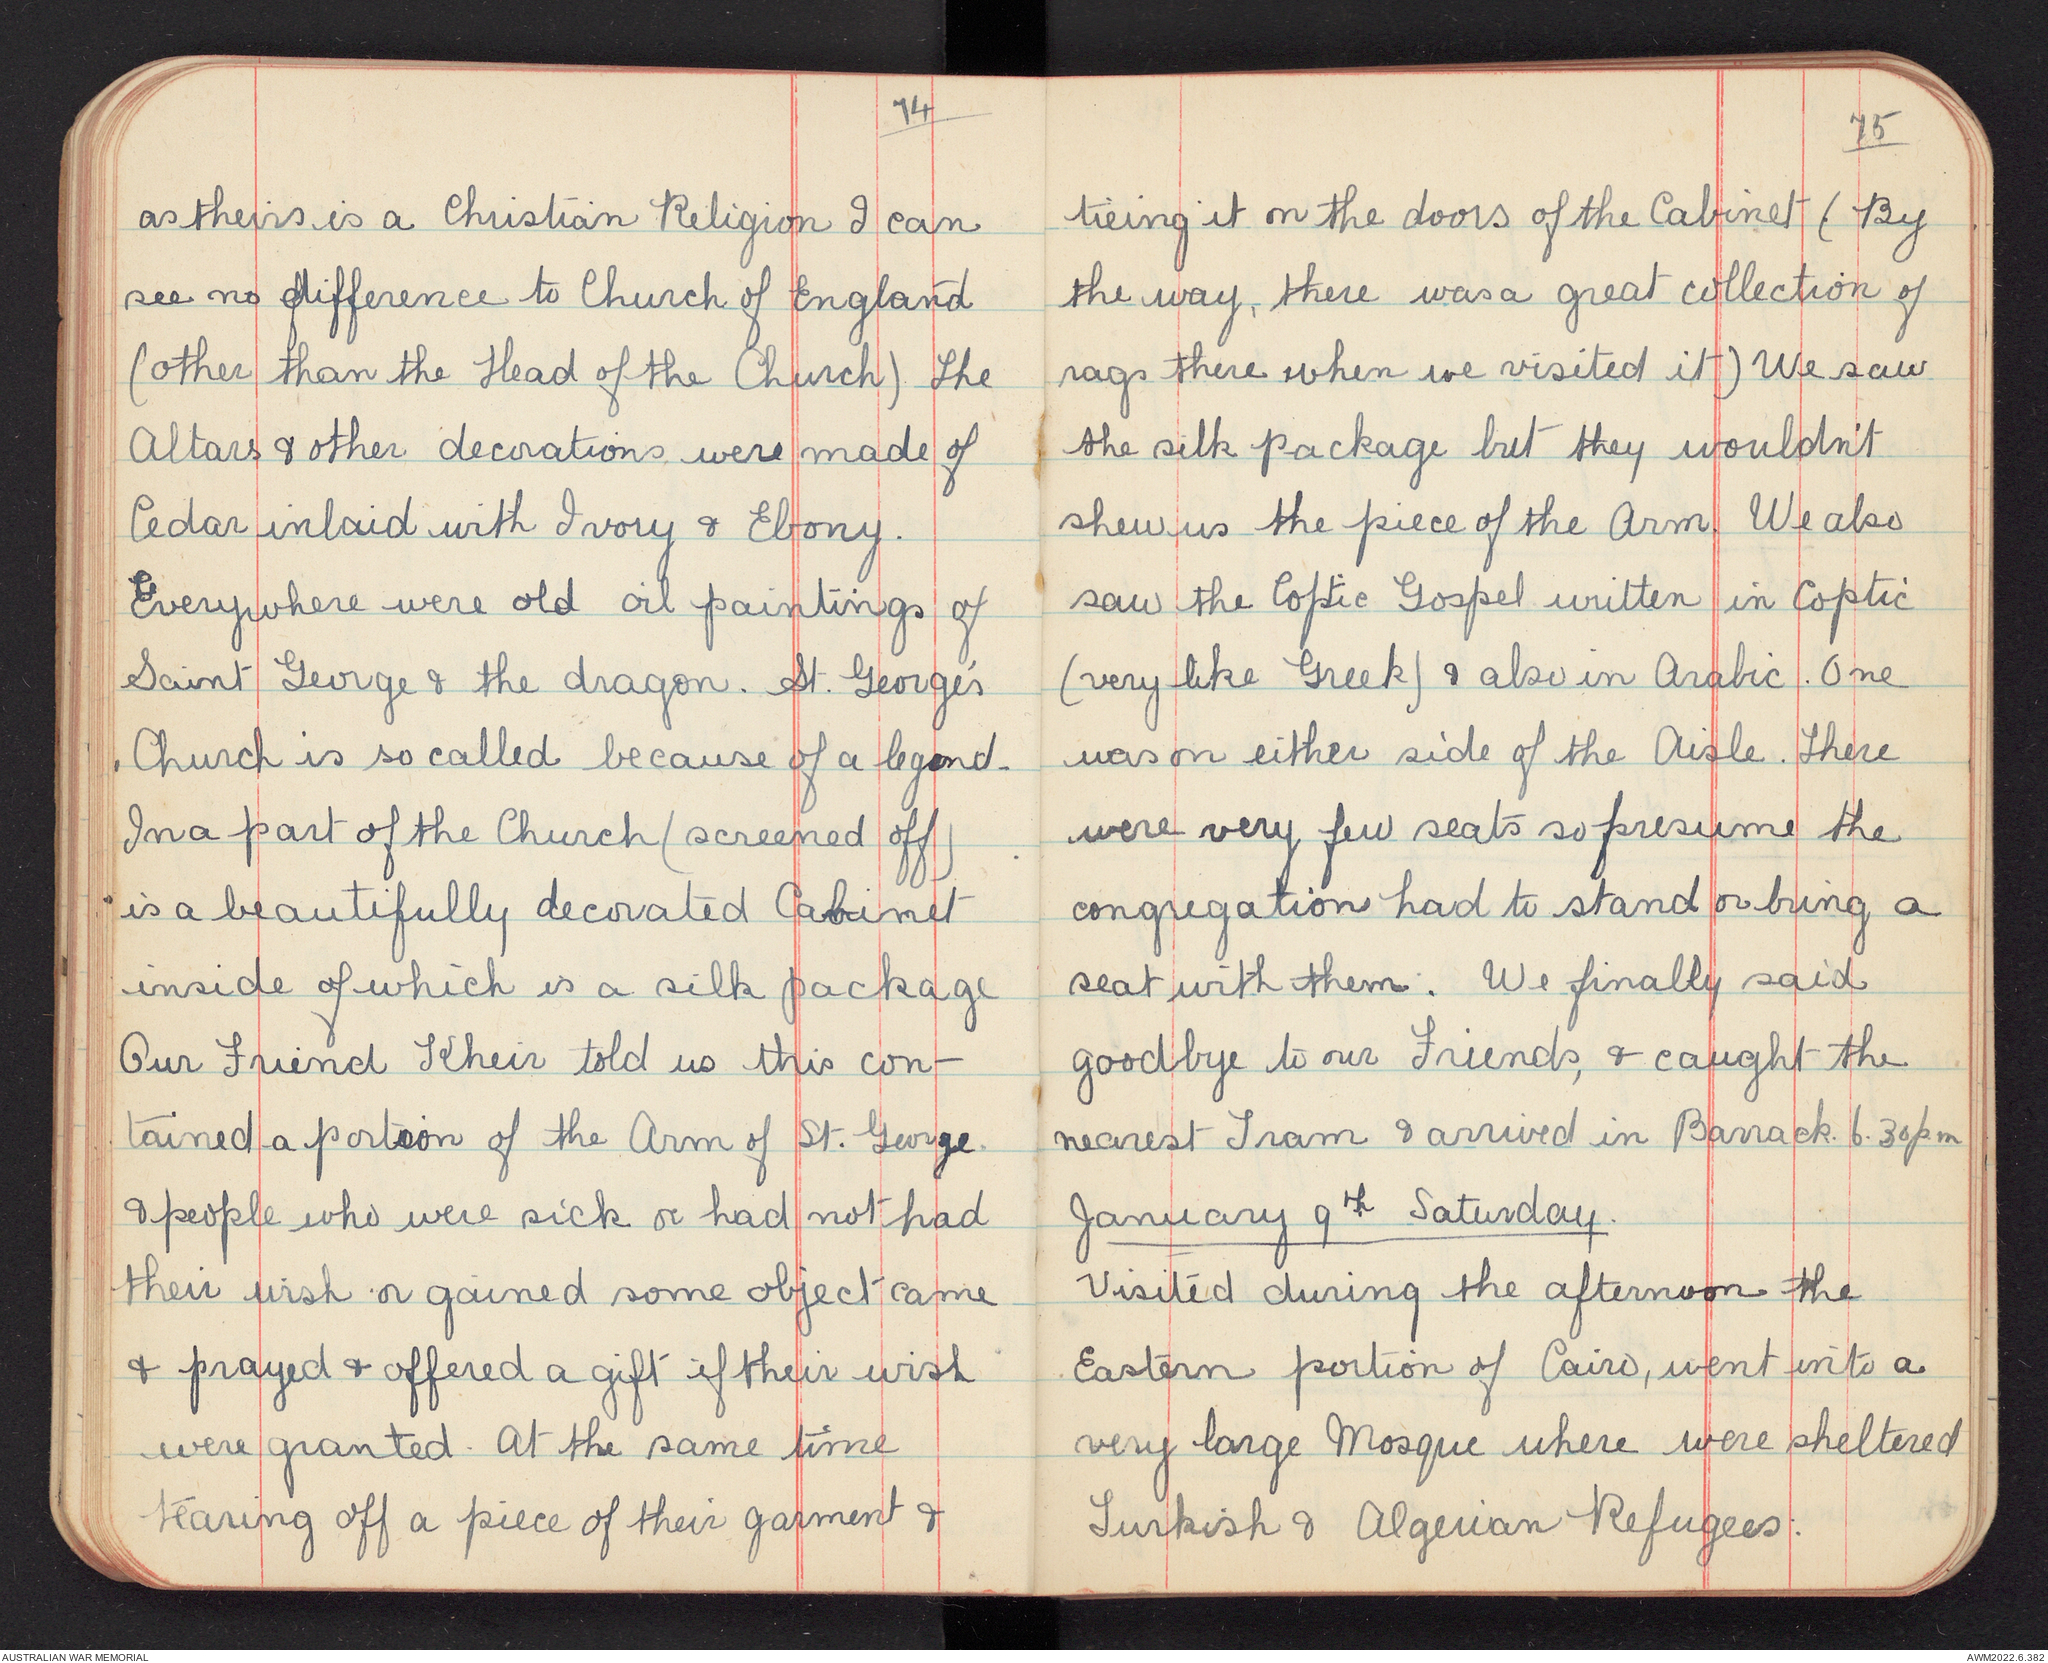 74
as theirs is a Christian Religion I can
see no difference to Church of England
(other than the Head of the Church). The
Altars & other decorations were made of
Cedar inlaid with Ivory & Ebony.
Everywhere were old oil paintings of
Saint George & the dragon. St. George's
Church is so called because of a legend.
In a part of the Church (screened off)
is a beautifully decorated Cabinet
inside of which is a silk package
Our Friend Kheir told us this con-
tained a portion of the Arm of St. George.
& people who were sick or had not had
their wish or gained some object came
& prayed & offered a gift if their wish
were granted. At the same time
tearing off a piece of their garment &
75
tieing it on the doors of the Cabinet (By
the way, there was a great collection of
rags there when we visited it) We saw
the silk package but they wouldn't
shew us the piece of the Arm. We also
saw the Coptic Gospel written in Coptic
(very like Greek) & also in Arabic. One
was on either side of the Aisle. There
were very few seats so presume the
congregation had to stand or bring a
seat with them. We finally said
goodbye to our Friends, & caught the
nearest Tram & arrived in Barrack. 6.30pm
January 9th Saturday.
Visited during the afternoon the
Eastern portion of Cairo, went into a
very large Mosque where were sheltered
Turkish & Algerian Refugees.
AUSTRALIAN WAR MEMORIAL
AWM2022.6.382